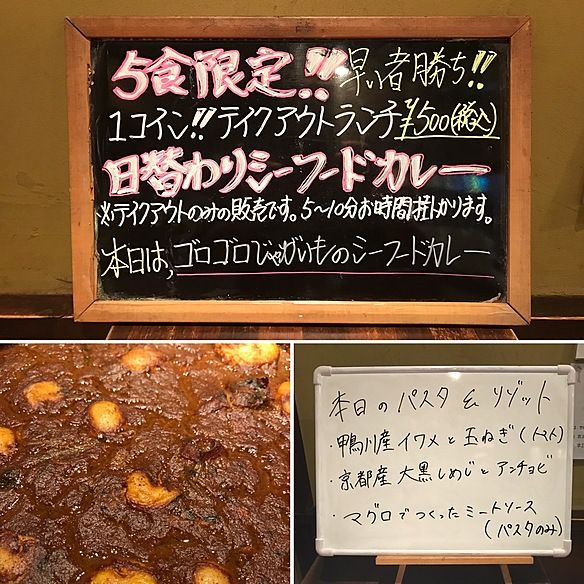 5食限定!! 早い者勝ち!!
1コイン!! テイクアウトランチ ¥500(税込)
日替わりシーフードカレー
※テイクアウトのみの販売です。5〜10分お時間掛かります。
本日は、ゴロゴロじゃがいものシーフードカレー
本日のパスタ & リゾット
・鴨川産イワメと玉ねぎ(トマト)
・京都産大黒しめじとアンチョビ
・マグロでつくったミートソース
(パスタのみ)